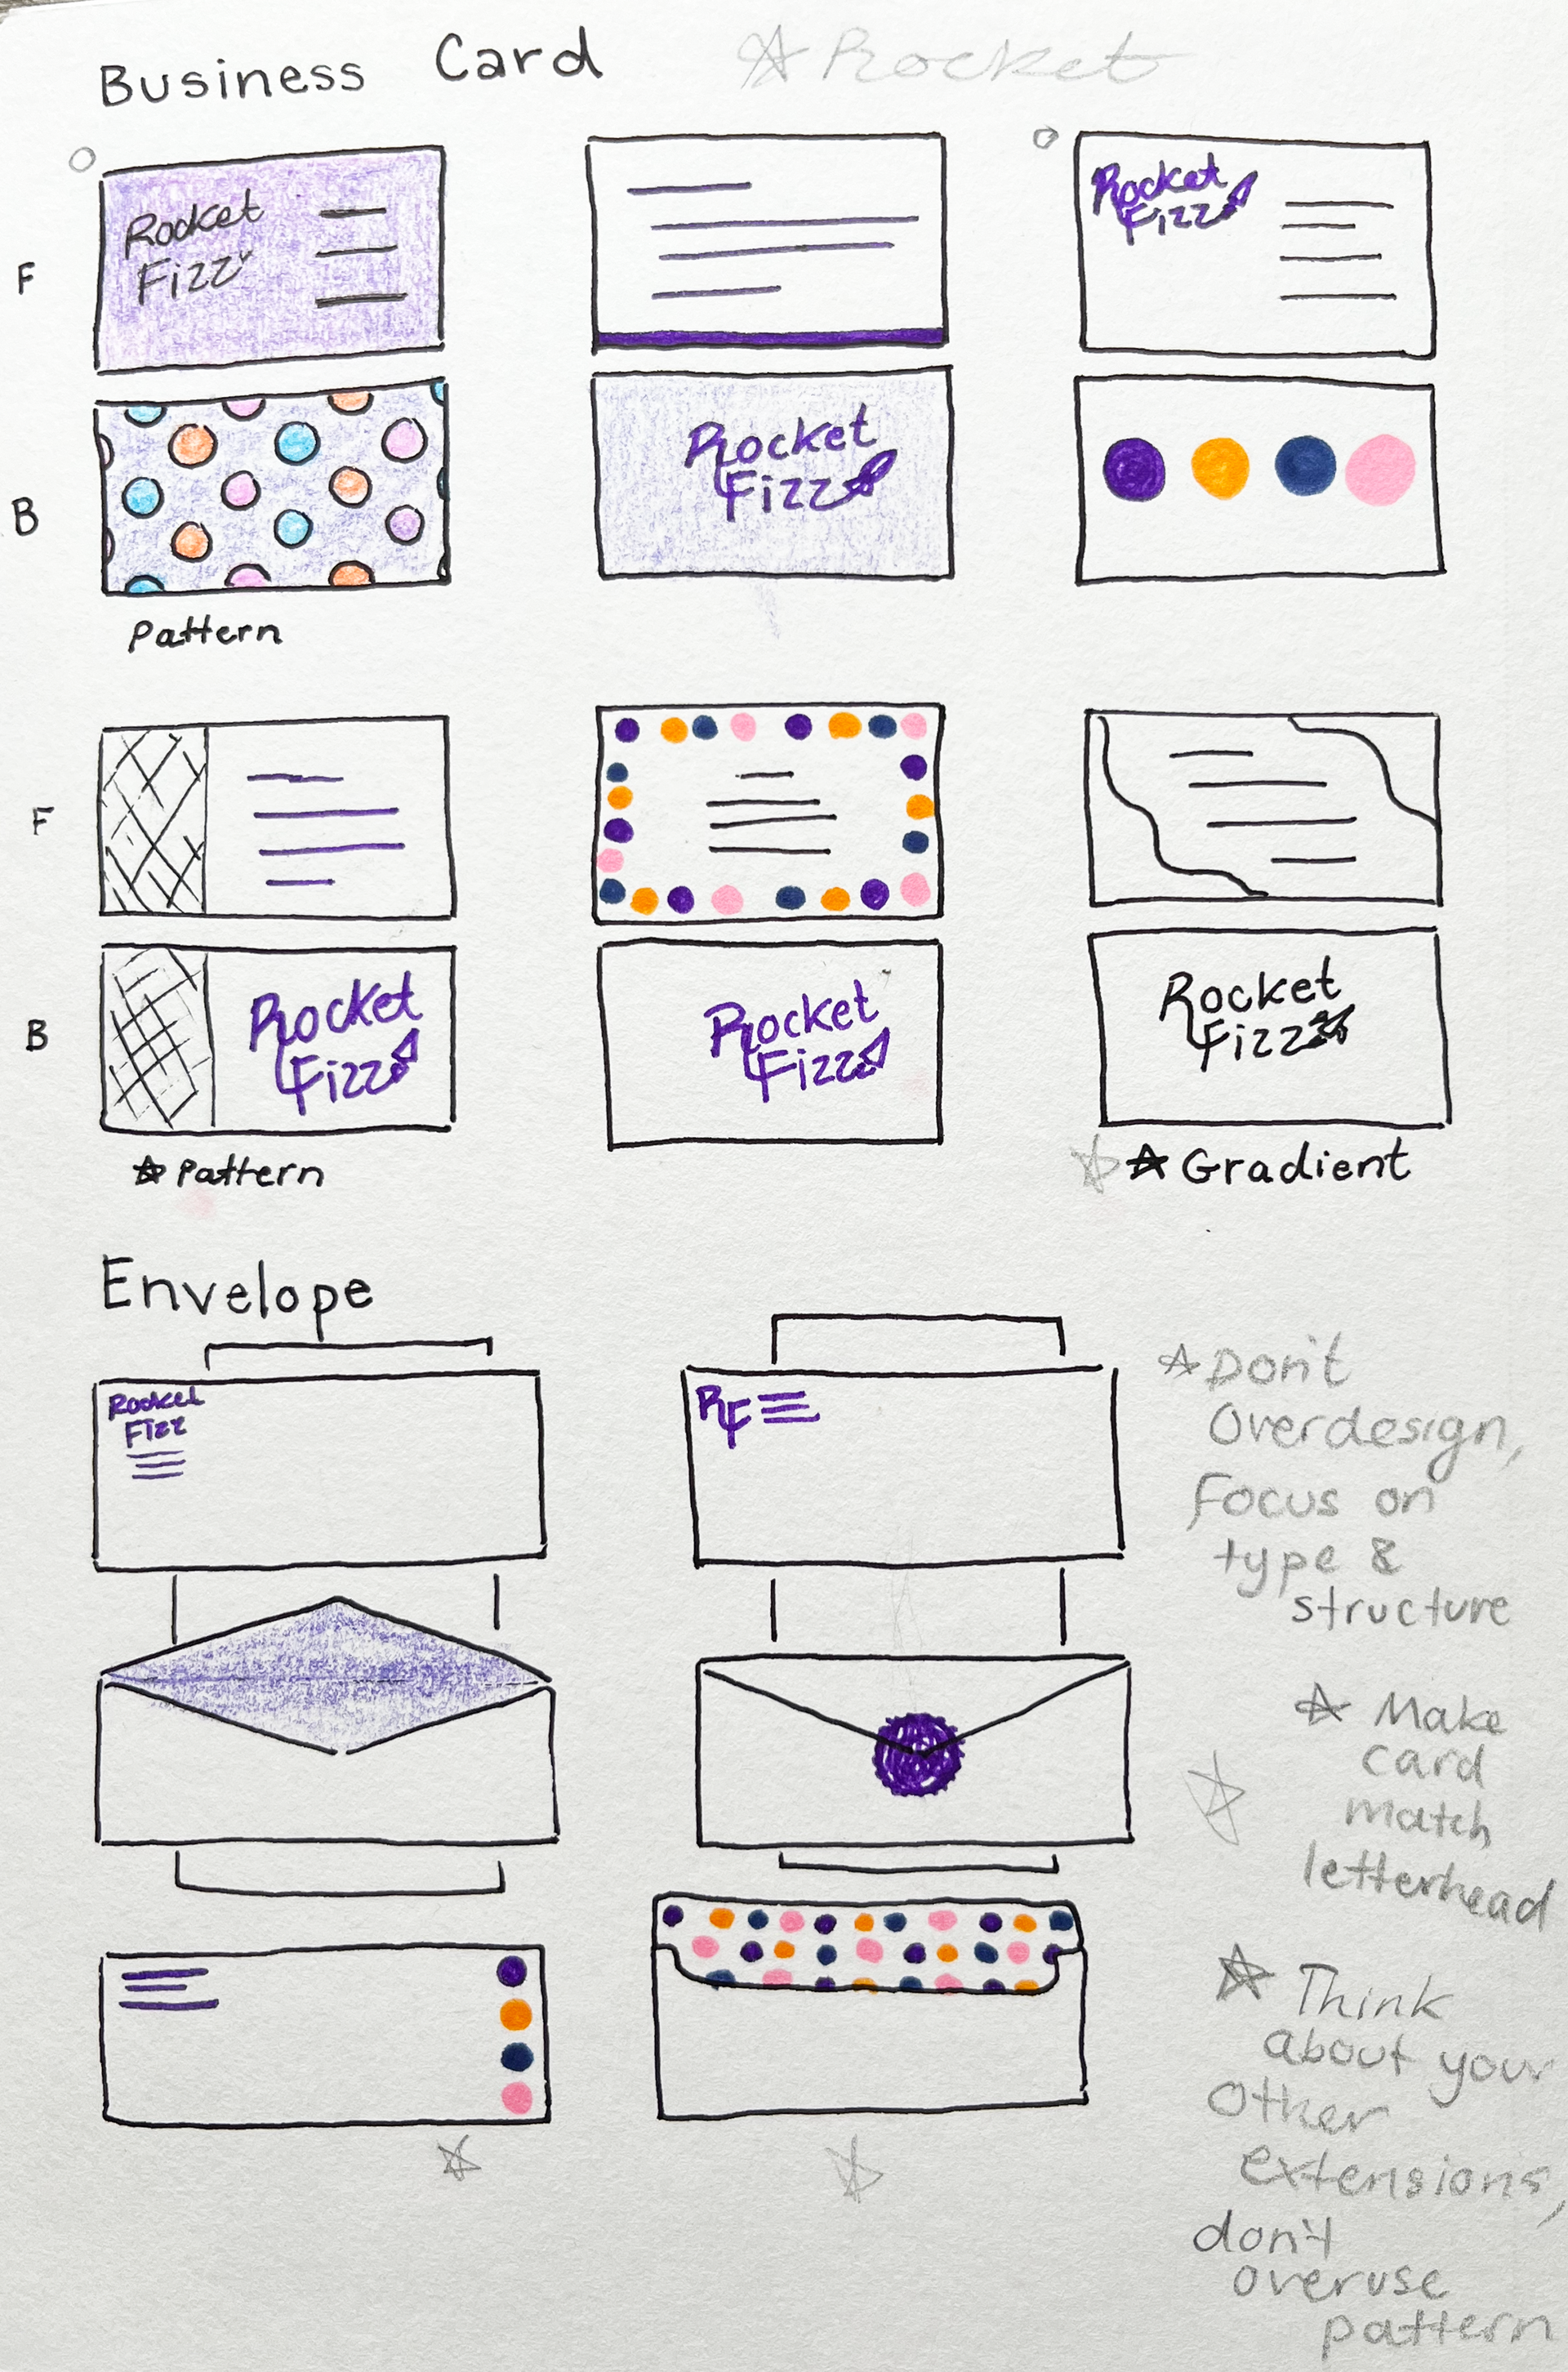 Business Card ☆ Rocket
F
Rocket
Fizz
Rocket
Fizz
B
Rocket
Fizz
Pattern
F
B
Rocket
Fizz
Rocket
Fizz
Rocket
Fizz
☆ Pattern
☆ ☆ Gradient
Envelope
Rocket
Fizz
RF
☆ Don't
Overdesign,
Focus on
type &
structure
☆ Make
card
match
letterhead
☆ Think
about your
Other
extensions,
don't
overuse
pattern